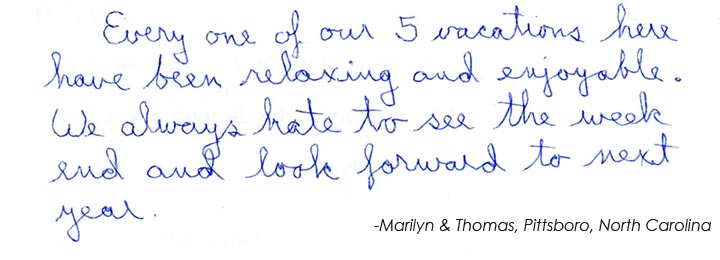 Every one of our 5 vacations here
have been relaxing and enjoyable.
We always hate to see the week
end and look forward to next
year.
-Marilyn & Thomas, Pittsboro, North Carolina